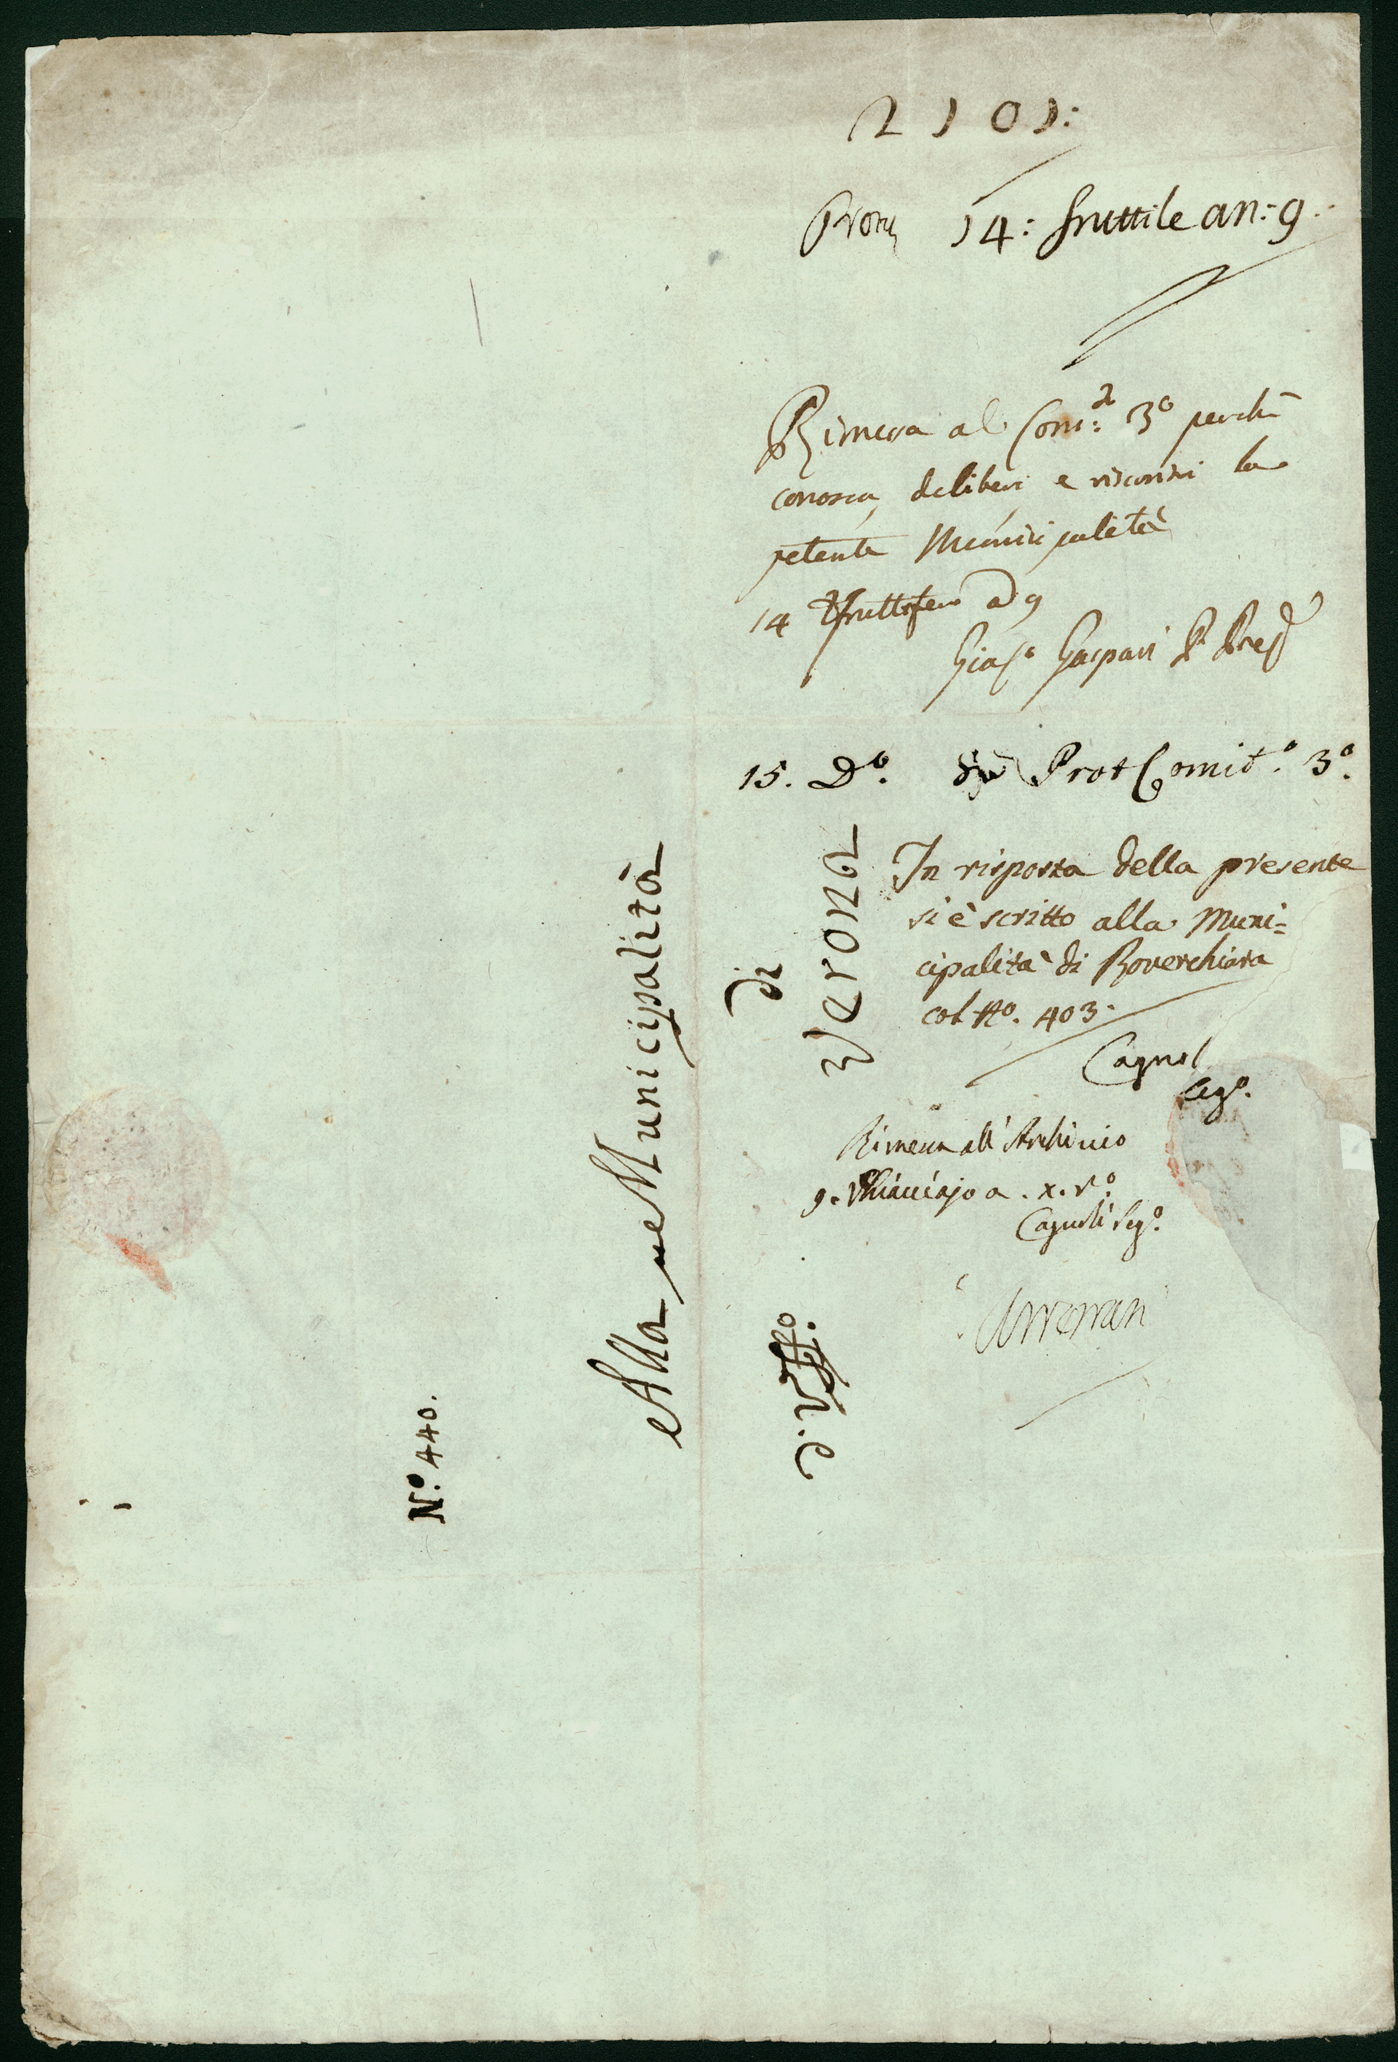 2101:
Prod 14: fruttile an: 9.
Rimessa al Com:to 3º perchè
conosca, deliberi e riscontri la
petente Municipalità
14 Fruttifero a 9
Gaspari P. Presd
15. Dº. Prot Comitº. 3º.
In risposta della presente
si è scritto alla Muni=
cipalità di Roverchiara
col Nº. 403.
Cagnol
Segº.
Rimessa all'Archivio
9. Ghiacciajo a. x. rº.
Cagnoli Segº.
Alla Municipalità
di
Verona
d'Uffº.
Nº. 440.